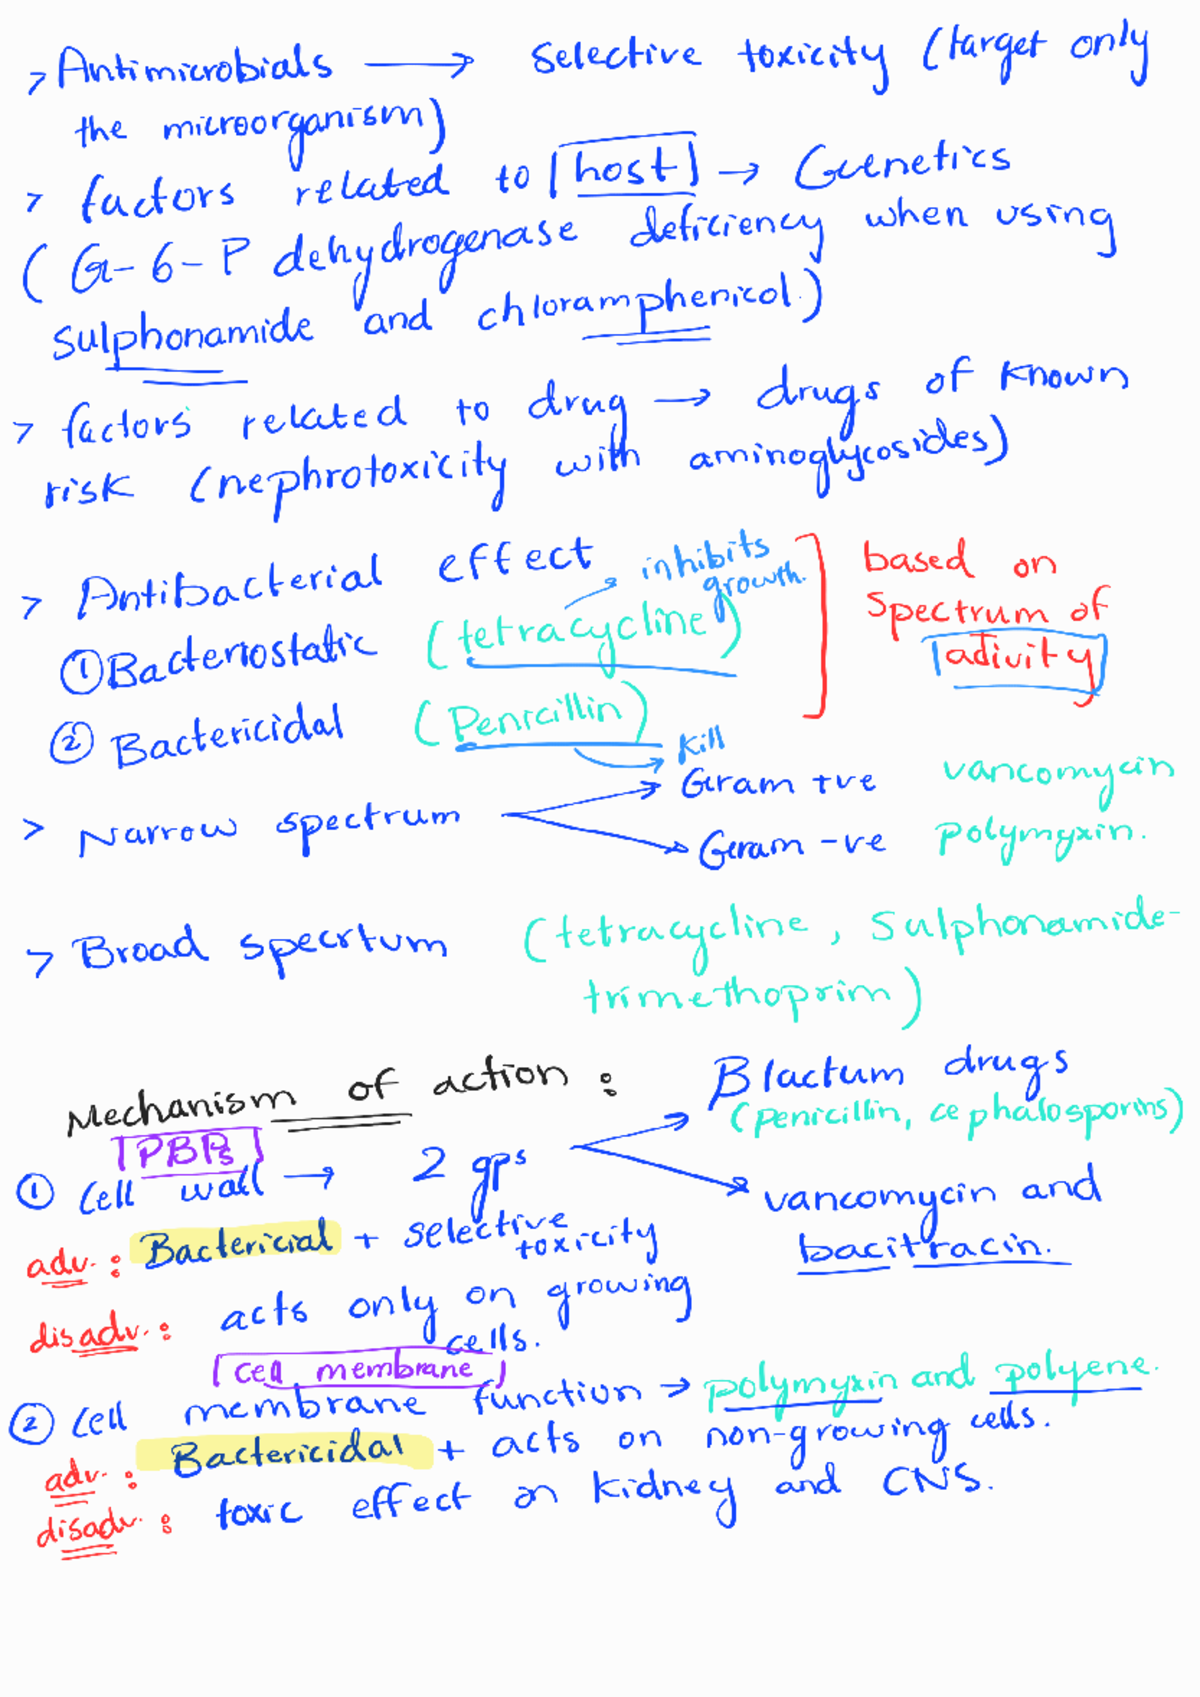 > Antimicrobials → Selective toxicity (target only
the microorganism)
> factors related to [host] → Genetics
(G-6-P dehydrogenase deficiency when using
sulphonamide and chloramphenicol.)
> factors related to drug → drugs of known
risk (nephrotoxicity with aminoglycosides)
> Antibacterial effect
inhibits
growth.
① Bacteriostatic (tetracycline)
② Bactericidal (Penicillin)
Kill
based on
Spectrum of
adivity
> Narrow spectrum
Gram +ve vancomycin
Gram -ve polymyxin.
> Broad specrtum (tetracycline, Sulphonamide-
trimethoprim)
Mechanism of action :
[PBPs]
① Cell wall → 2 gps
B lactum drugs
(penicillin, cephalosporins)
vancomycin and
bacitracin.
adv. : Bactericial + selective
toxicity
disadv. : acts only on growing
cells.
[cell membrane]
② Cell membrane function → polymyxin and polyene.
adv. : Bactericidal + acts on non-growing cells.
disadv. : toxic effect on kidney and CNS.